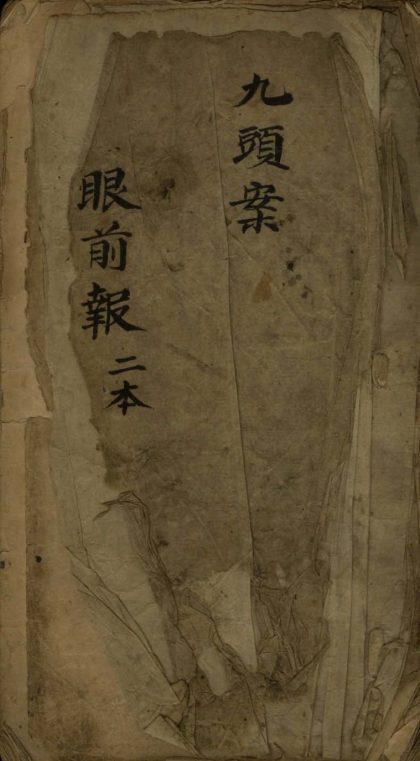 九頭案
眼前報 二本